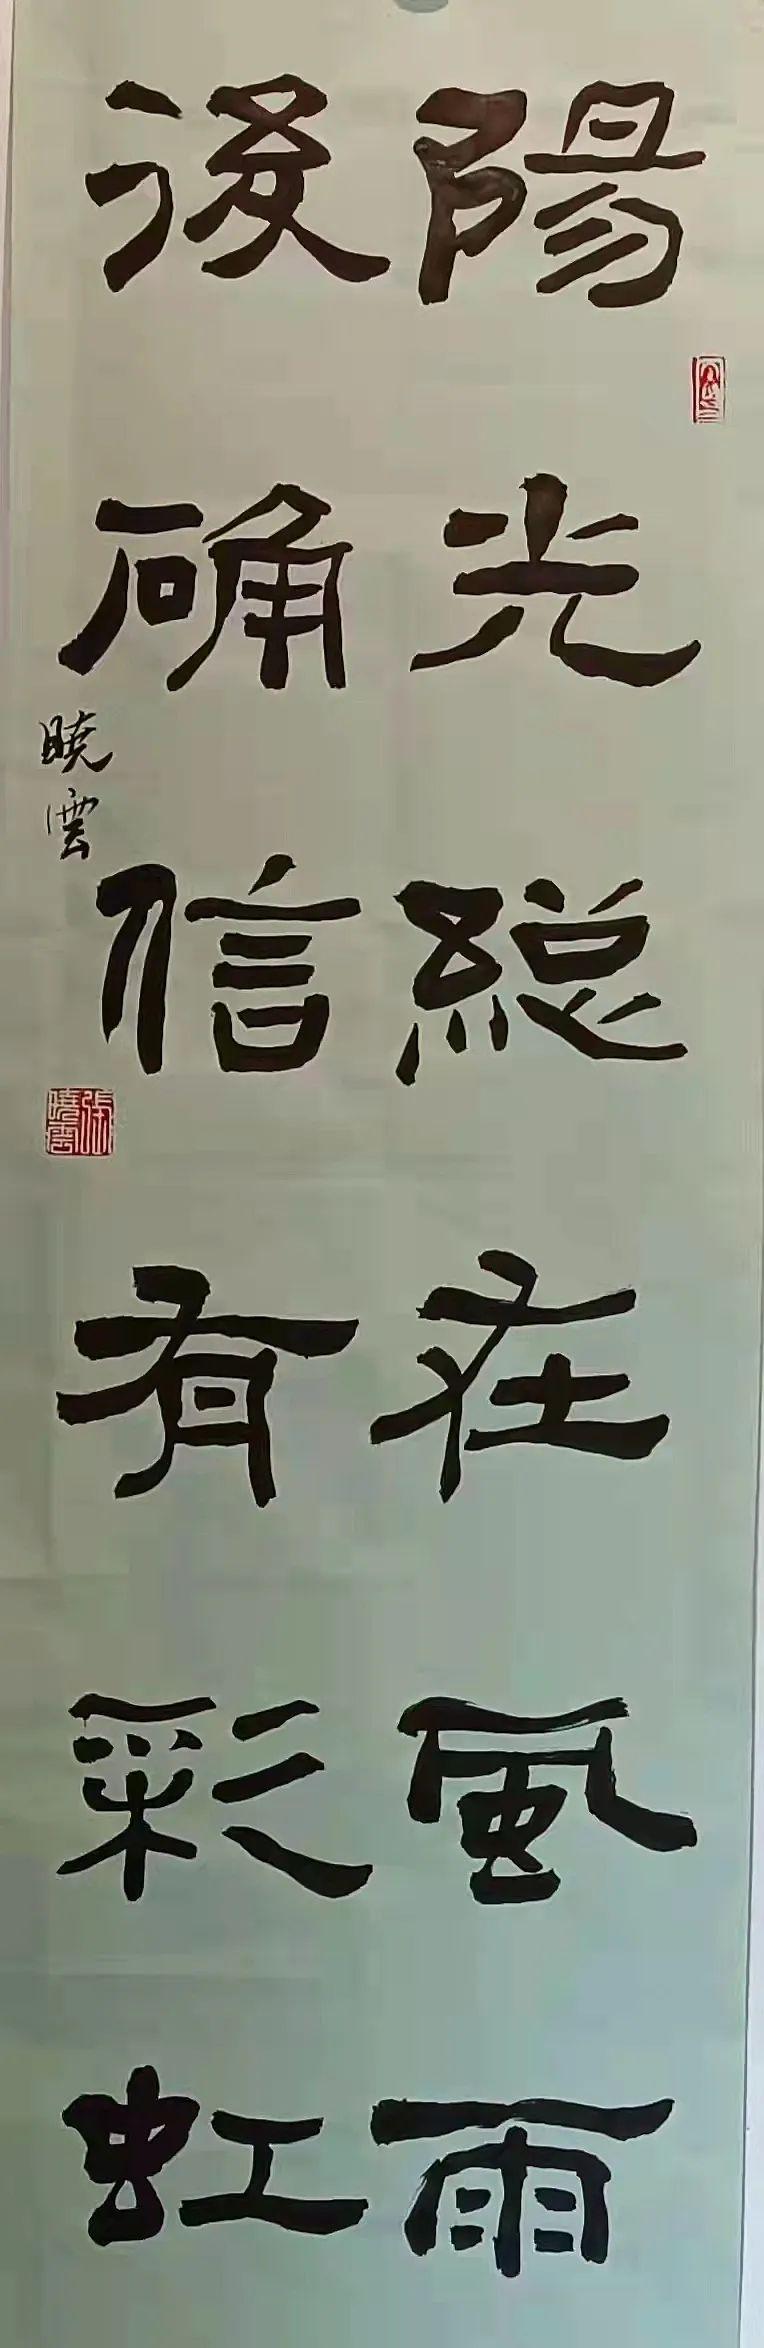 陽光總在風雨
後确信有彩虹
曉雲
張曉雲